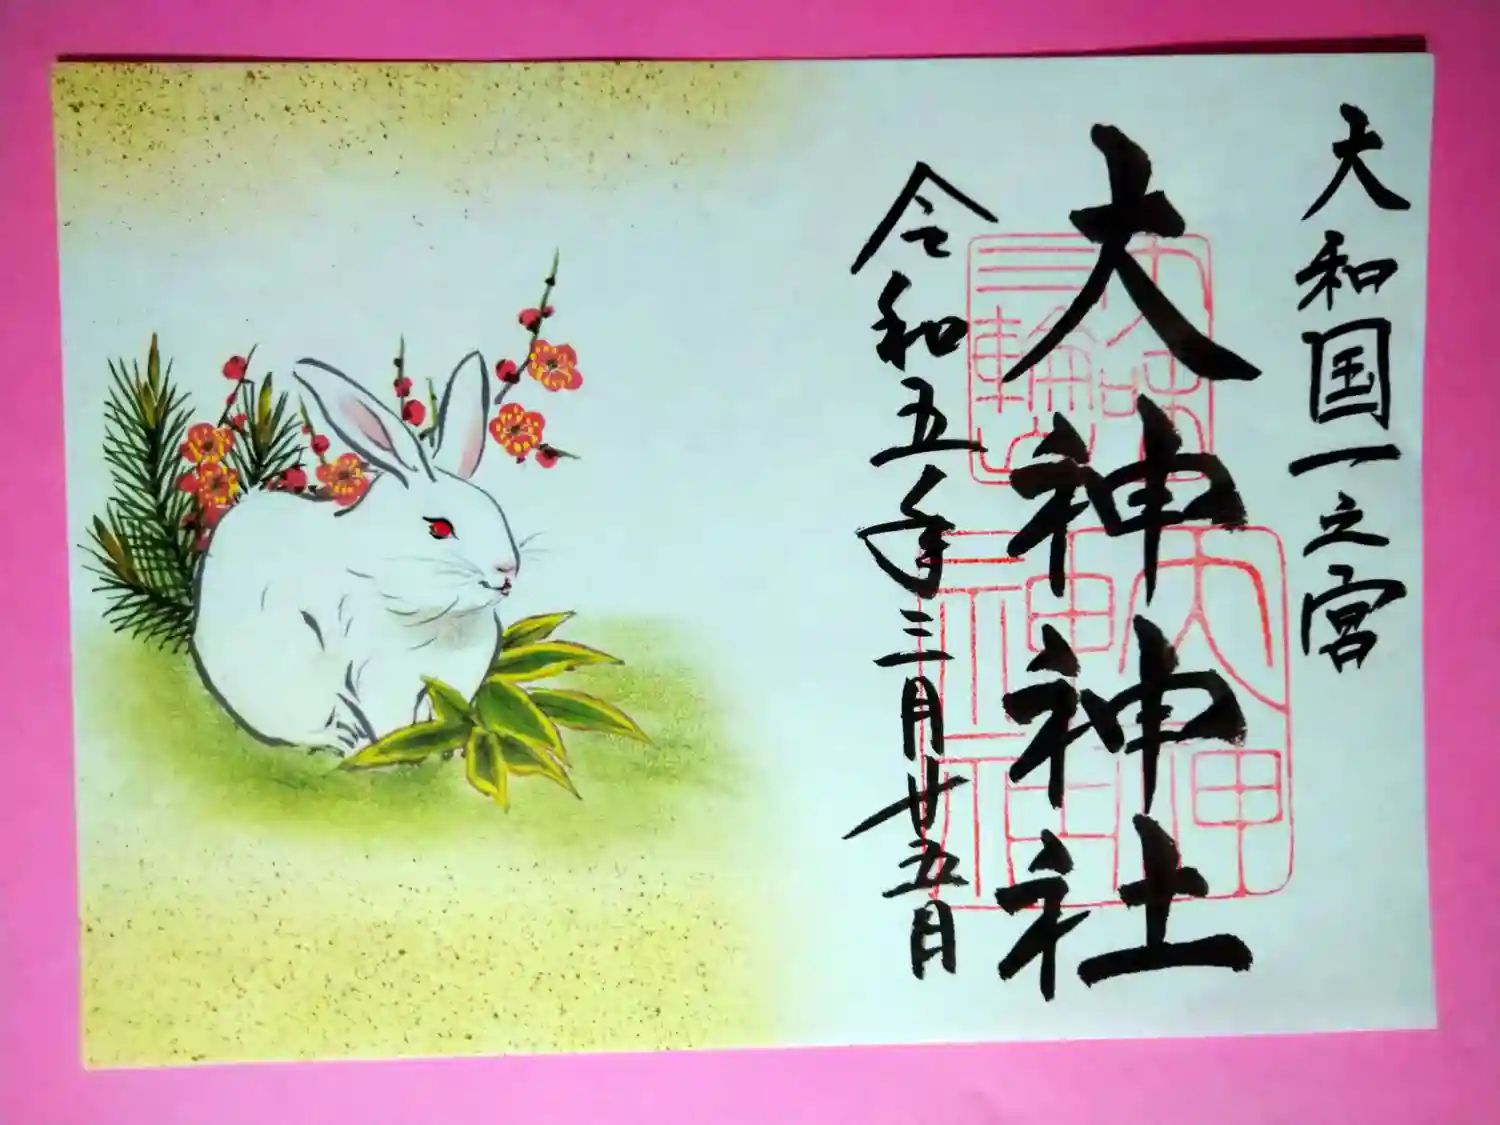 大和国一之宮
大神神社
令和五年三月廿五日
三輪
大神神社